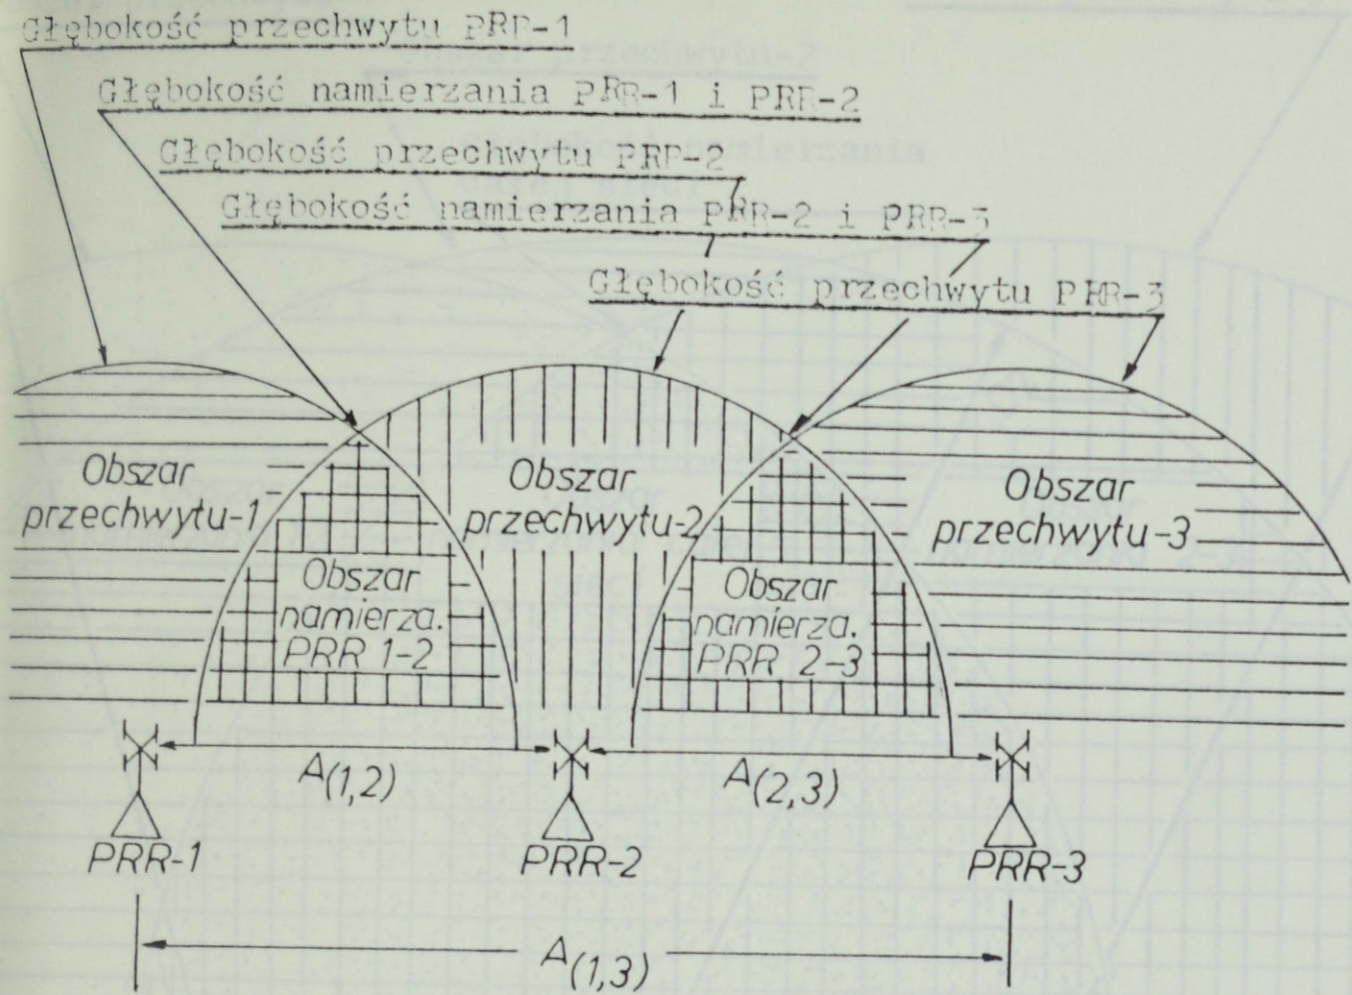 Głębokość przechwytu PRR-1
Głębokość namierzania PRR-1 i PRR-2
Głębokość przechwytu PRR-2
Głębokość namierzania PRR-2 i PRR-3
Głębokość przechwytu PRR-3
Obszar
przechwytu-1
Obszar
przechwytu-2
Obszar
przechwytu-3
Obszar
namierza.
PRR 1-2
Obszar
namierza.
PRR 2-3
A(1,2)
A(2,3)
PRR-1
PRR-2
PRR-3
A(1,3)